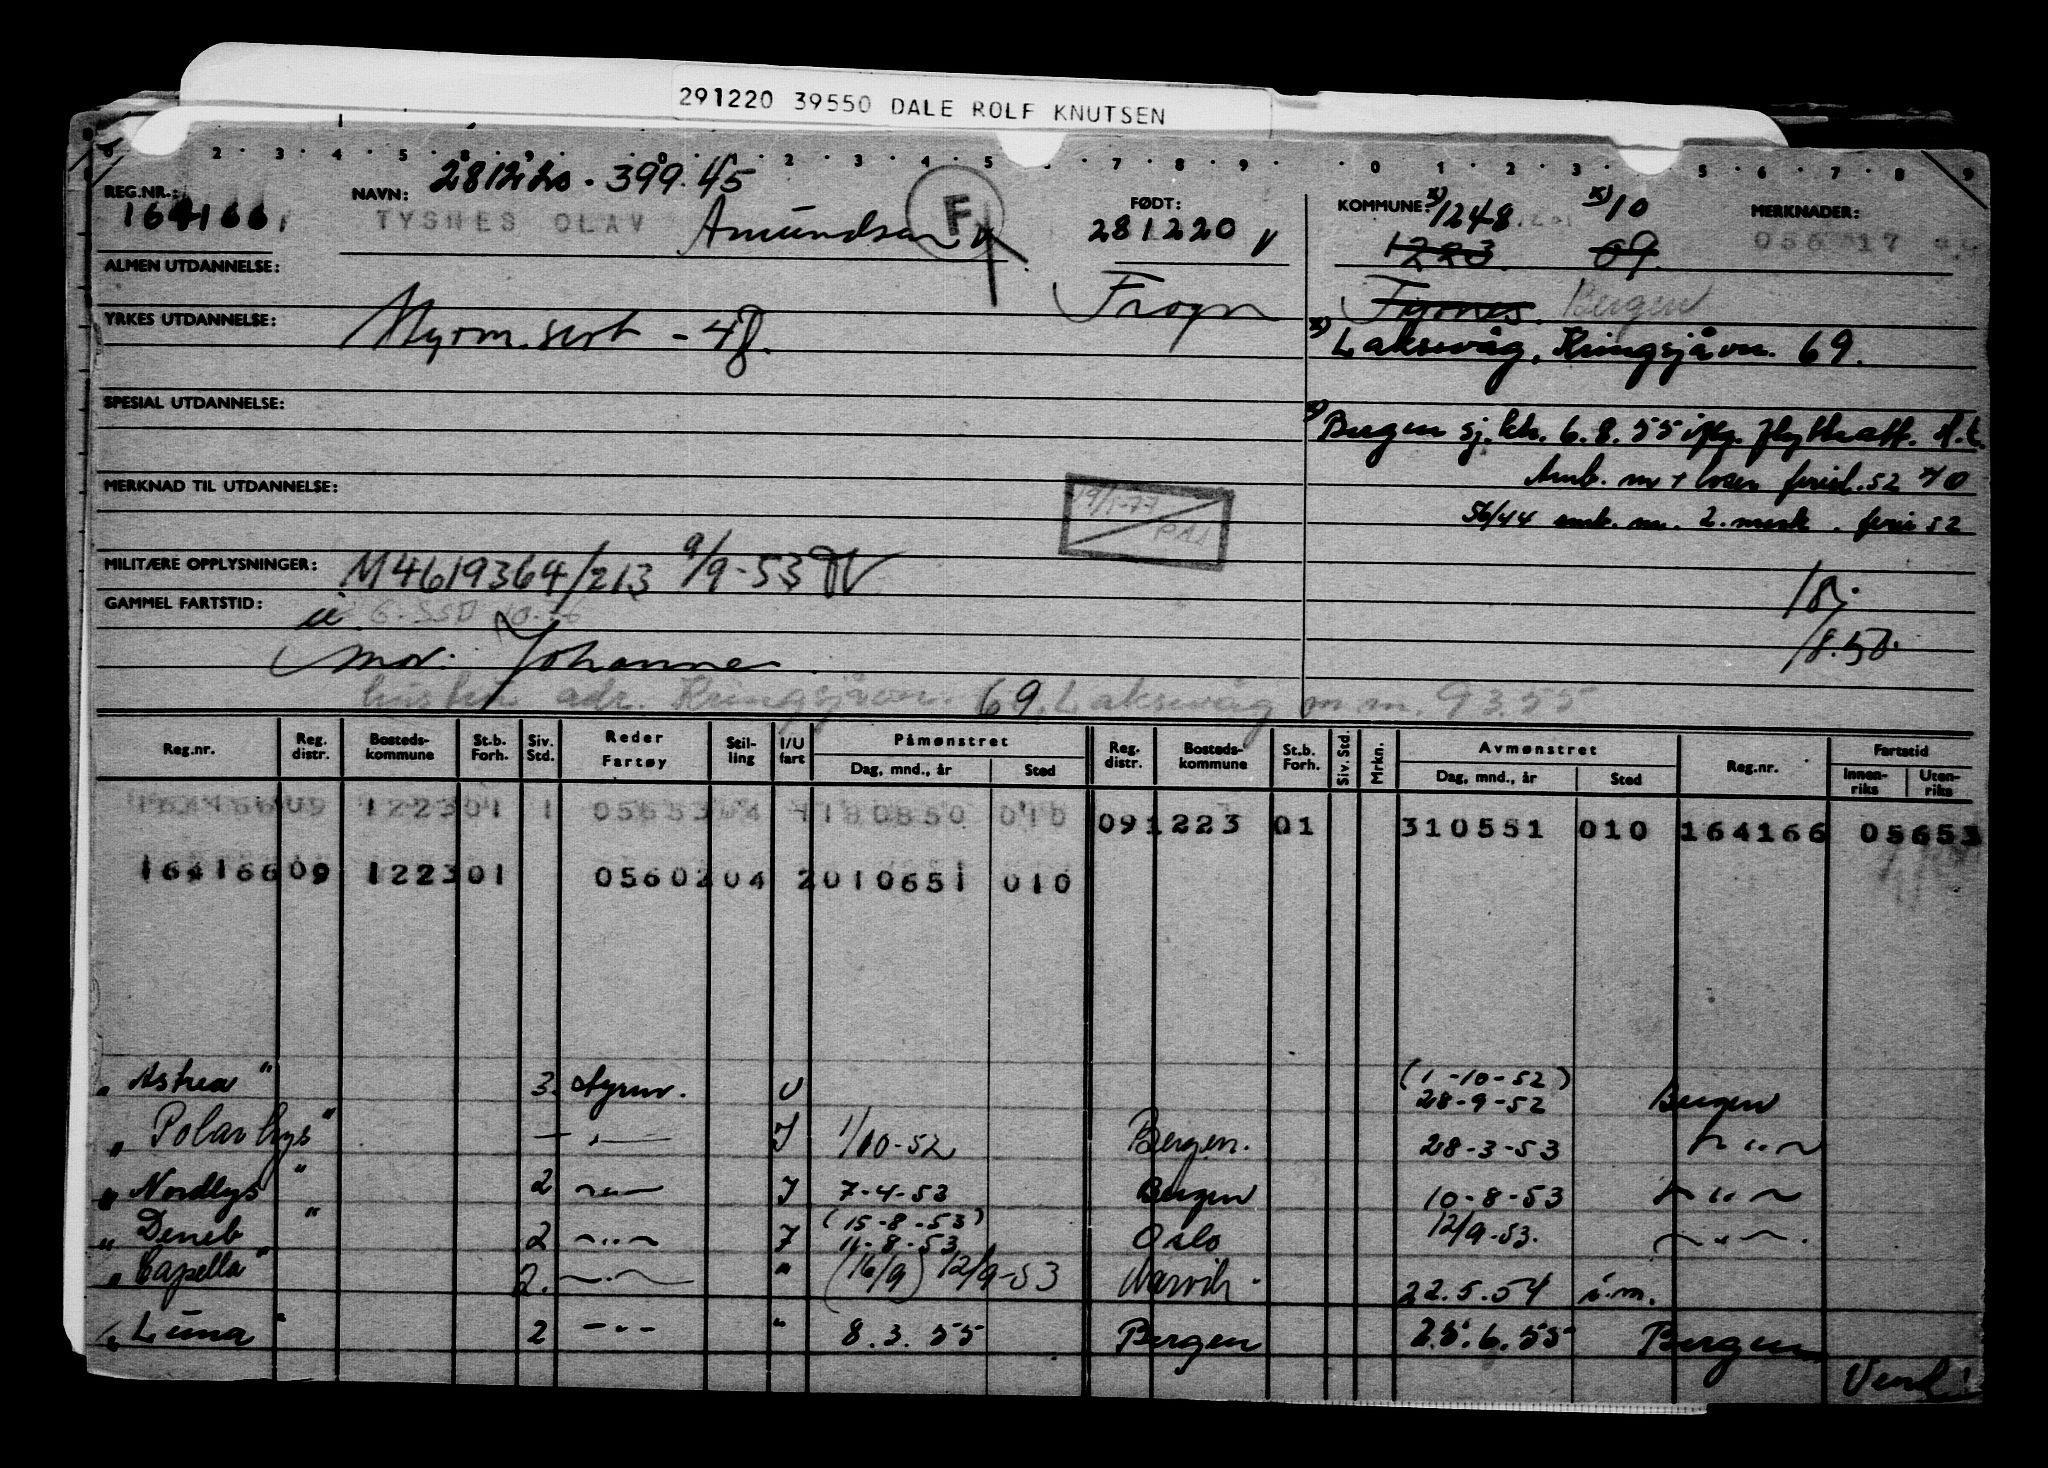 291220 39550 DALE ROLF KNUTSEN
2 3 4 5 8 9 0 2 3 4 5 7 8 9 0 1 2 3 5 6 7 8 9
281220. 399.45
REG.NR.: 164166 NAVN: TYSNES OLAV Amundsen F FØDT: 281220 KOMMUNE: x) 1248 x) 10 MERKNADER:
1223 09 056 17
ALMEN UTDANNELSE: Frogn Tysnes. Bergen
YRKES UTDANNELSE: Styrm. sert - 48. x) Laksevåg, Kringsjåvn. 69.
SPESIAL UTDANNELSE:
x) Bergen sj. ktr. 6.8.55
MERKNAD TIL UTDANNELSE: 19/1-77
56/44 2. 52
MILITÆRE OPPLYSNINGER: M4619364/213 9/9-53
GAMMEL FARTSTID:
Mor: Johanne
adr. Kringsjåvn. 69. Laksevåg m.m. 9 3.55
Reg.nr. Reg. distr. Bosteds- kommune St.b. Forh. Siv. Std. Reder Fartøy Stil- ling I/U fart Påmønstret Dag, mnd., år Sted Reg. distr. Bosteds- kommune St.b. Forh. Siv. Std. Mrkn. Avmønstret Dag, mnd., år Sted Reg.nr. Fartstid Innen- riks Uten- riks
164166 09 1223 01 1 05653 04 180850 010 09 1223 01 310551 010 164166 05653
164166 09 1223 01 05602 04 2 010651 010
"Astrea" 3. styrm. U (1-10-52) 28-9-52 Bergen
"Polarlys" — " — I 1/10-52 Bergen. 28-3-53 — " —
"Nordlys" 2 — " — I 7-4-53 Bergen 10-8-53 — " —
"Deneb" 2 — " — I (15-8-53) 11-8-53 Oslo 12/9-53. — " —
"Capella" 2. — " — " (16/9) 12/9-53 Narvik. 22.5.54 i.m.
"Luna" 2 — " — " 8.3.55 Bergen 25.6.55 Bergen